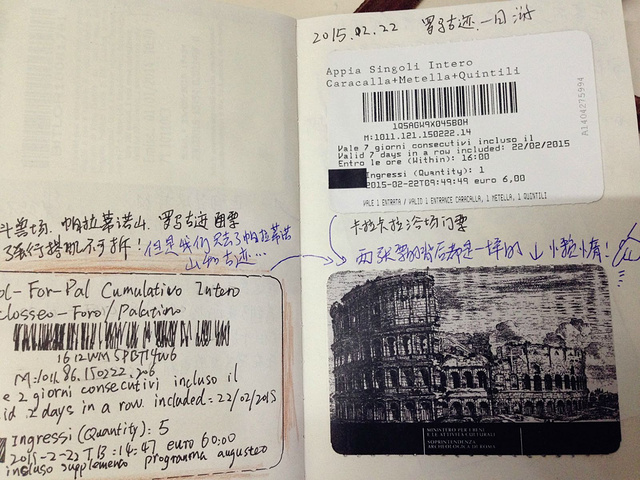 斗兽场、帕拉蒂诺山、罗马古迹
不可拆！但是我们只去了帕拉蒂诺
山和古迹...
ol-For-Pal Cumulativo Intero
closseo-Foro/Palatino
M:1011.86.150222.206
e 2 giorni consecutivi incluso il
id 2 days in a row included: 22/02/2015
Ingressi (Quantity): 5
2015-2-22 T13:14:47 euro 60:00
incluso supplemento programma augusteo
2015.02.22 罗马古迹一日游
Appia Singoli Intero
Caracalla+Metella+Quintili
1Q5AGW9X045B0H
M:1011.121.150222.14
Vale 7 giorni consecutivi incluso il
Valid 7 days in a row included: 22/02/2015
Entro le ore (Within): 16:00
Ingressi (Quantity): 1
2015-02-22T09:49:49 euro 6,00
VALE 1 ENTRATA / VALID 1 ENTRANCE CARACALLA, 1 METELLA, 1 QUINTILI
A1404275994
卡拉卡拉浴场门票
两张票的背后都是一样的
MINISTERO PER I BENI
E LE ATTIVITÀ CULTURALI
SOPRINTENDENZA
ARCHEOLOGICA DI ROMA